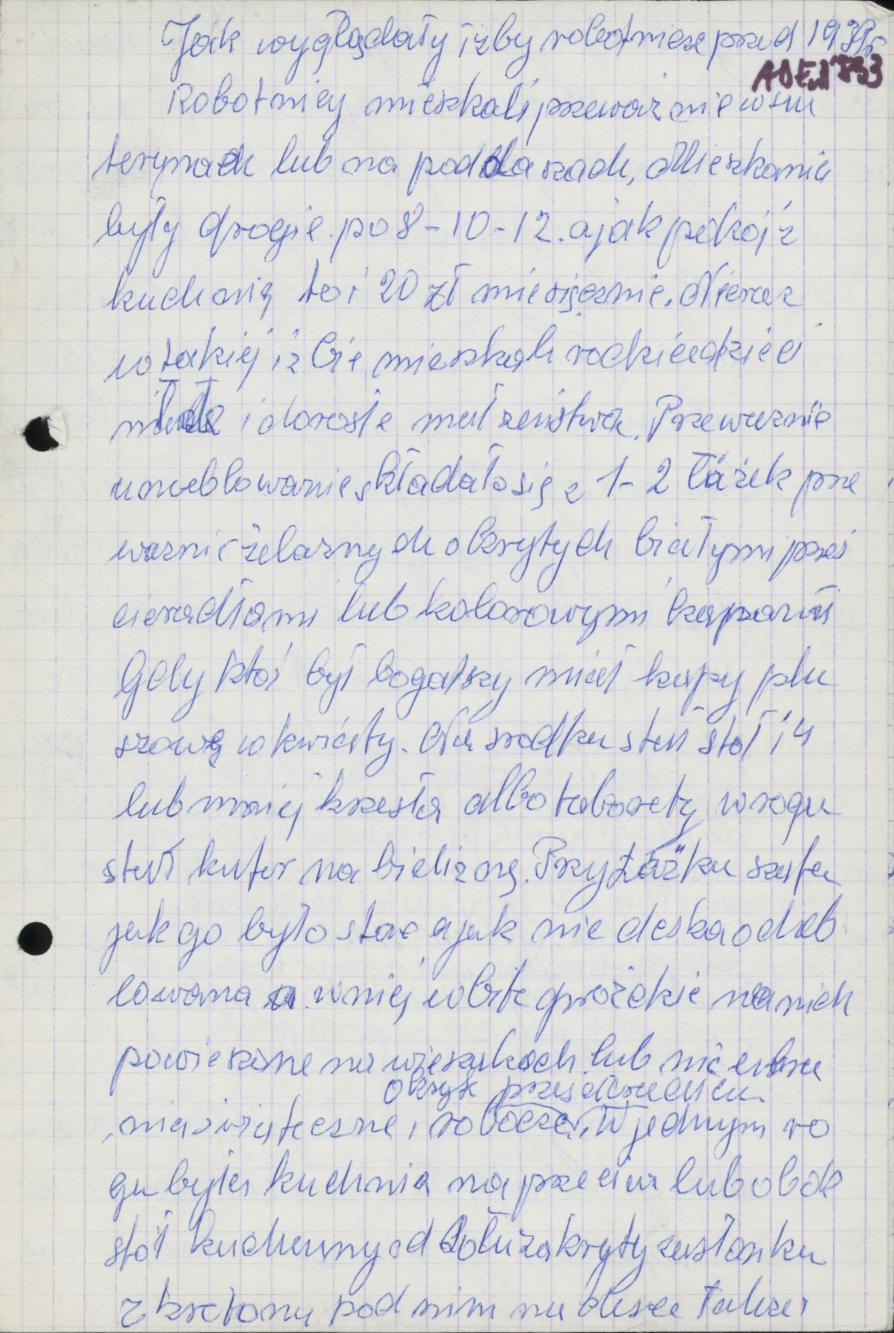 Jak wyglądały izby robotnicze przed 1939r
ADEW 833
Robotnicy mieszkali przeważnie w su
terynach lub na poddaszach, Mieszkania
były drogie. po 8-10-12. a jak pokój z
kuchnią to i 20 zł miesięcznie. Nieraz
w takiej izbie mieszkali rodzice dzieci
i dorosłe małżeństwa. Przeważnie
umeblowanie składało się z 1-2 łóżek prze
ważnie żelaznych okrytych białymi prześ
cieradłami lub kolorowymi kapami
Gdy ktoś był bogatszy miał kapy plu
szowe w kwiaty. Na środku stał stół i 4
lub mniej krzesła albo taborety w rogu
stał kufer na bieliznę. Przy łóżku szafa
jak go było stać a jak nie deska odheb
lowana a w niej wbite gwoździe na nich
powieszone na wieszakach lub nie ubra
okryte prześcieradłem
nia świąteczne i robocze. W jednym ro
gu była kuchnia na przeciw lub obok
stół kuchenny od dołu zakryty zasłonką
z kretonu pod nim na desce